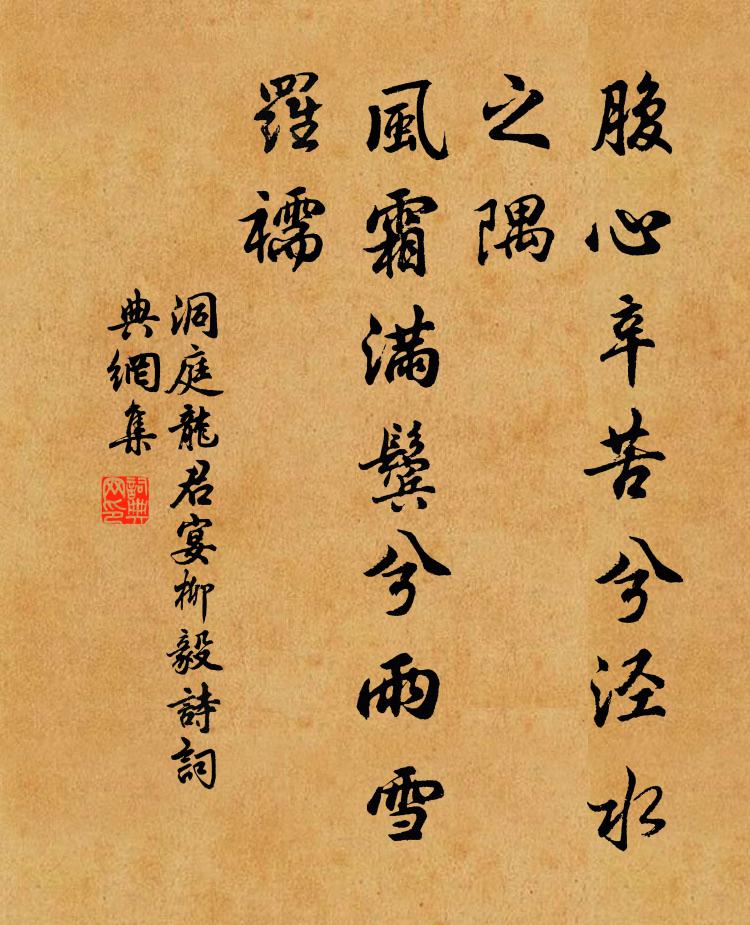 腹心辛苦兮泾水
之隅
風霜滿鬢兮雨雪
羅襦
洞庭龍君宴柳毅詩詞
典網集
詞典
网印